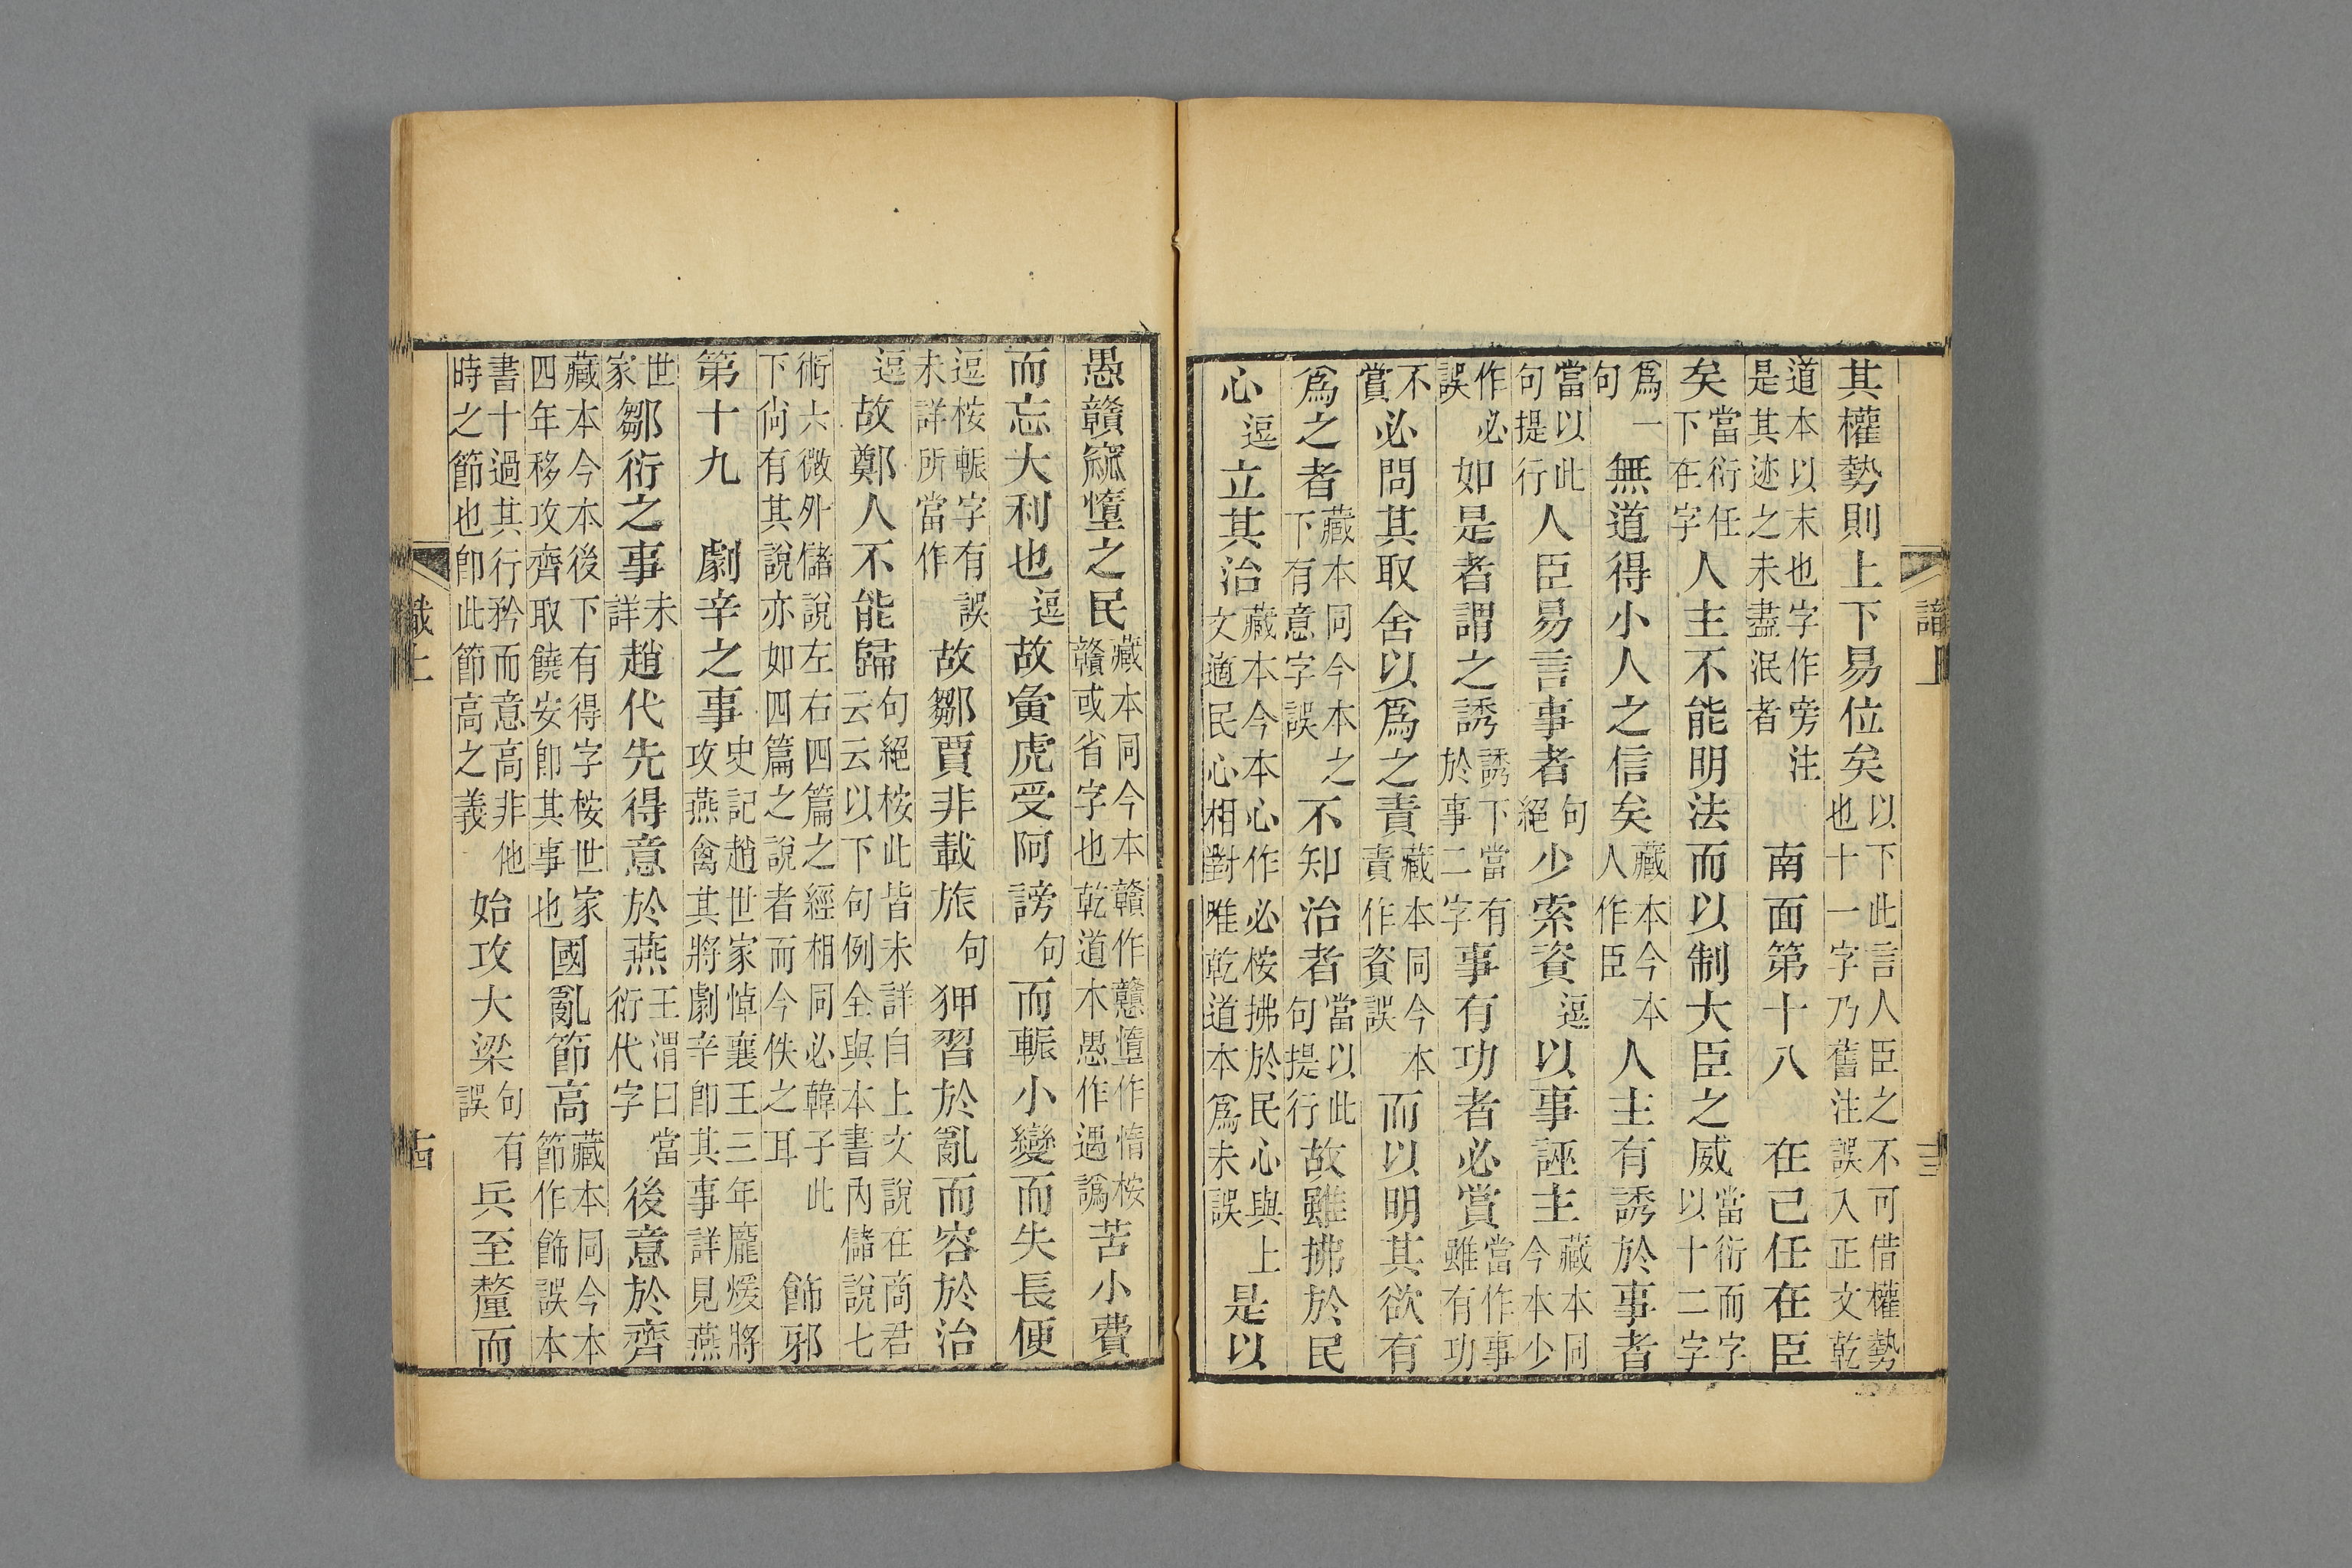 其權勢則上下易位矣以下此言人臣之不可借權勢也十一字乃舊注誤入正文乾
道本以末也字作旁注是其迹之未盡泯者 南面第十八 在己任在臣
矣當衍任下在字人主不能明法而以制大臣之威當衍而字以十二字
爲一句無道得小人之信矣藏本今本人作臣人主有誘於事者
當以此句提行人臣易言事者句絕少索資逗以事誣主藏本同今本少
作必誤如是者謂之誘誘下當有於事二字事有功者必賞當作事雖有功
不賞必問其取舍以爲之責藏本同今本責作資誤而以明其欲有
爲之者藏本同今本之下有意字誤不知治者當以此句提行故雖拂於民
心逗立其治藏本今本心作必桉拂於民心與上文適民心相對唯乾道本爲未誤是以
愚贛窳墯之民藏本同今本贛作戇墯作惰桉贛或省字也乾道木愚作遇譌苦小費
而忘大利也逗故夤虎受阿謗句而䡅小變而失長便
逗桉䡅字有誤未詳所當作故鄒賈非載旅句狎習於亂而容於治
逗故鄭人不能歸句絕桉此皆未詳自上文說在商君云云以下句例全與本書內儲說七
術六微外儲說左右四篇之經相同必韓子此下尙有其說亦如四篇之說者而今佚之耳 飾邪
第十九 劇辛之事史記趙世家悼襄王三年龐煖將攻燕禽其將劇辛卽其事詳見燕
世家鄒衍之事未詳趙代先得意於燕王渭曰當衍代字後意於齊
藏本今本後下有得字桉世家四年移攻齊取饒安卽其事也國亂節高藏本同今本節作飾誤本
書十過其行矜而意高非他時之節也卽此節高之義始攻大梁句有誤兵至釐而